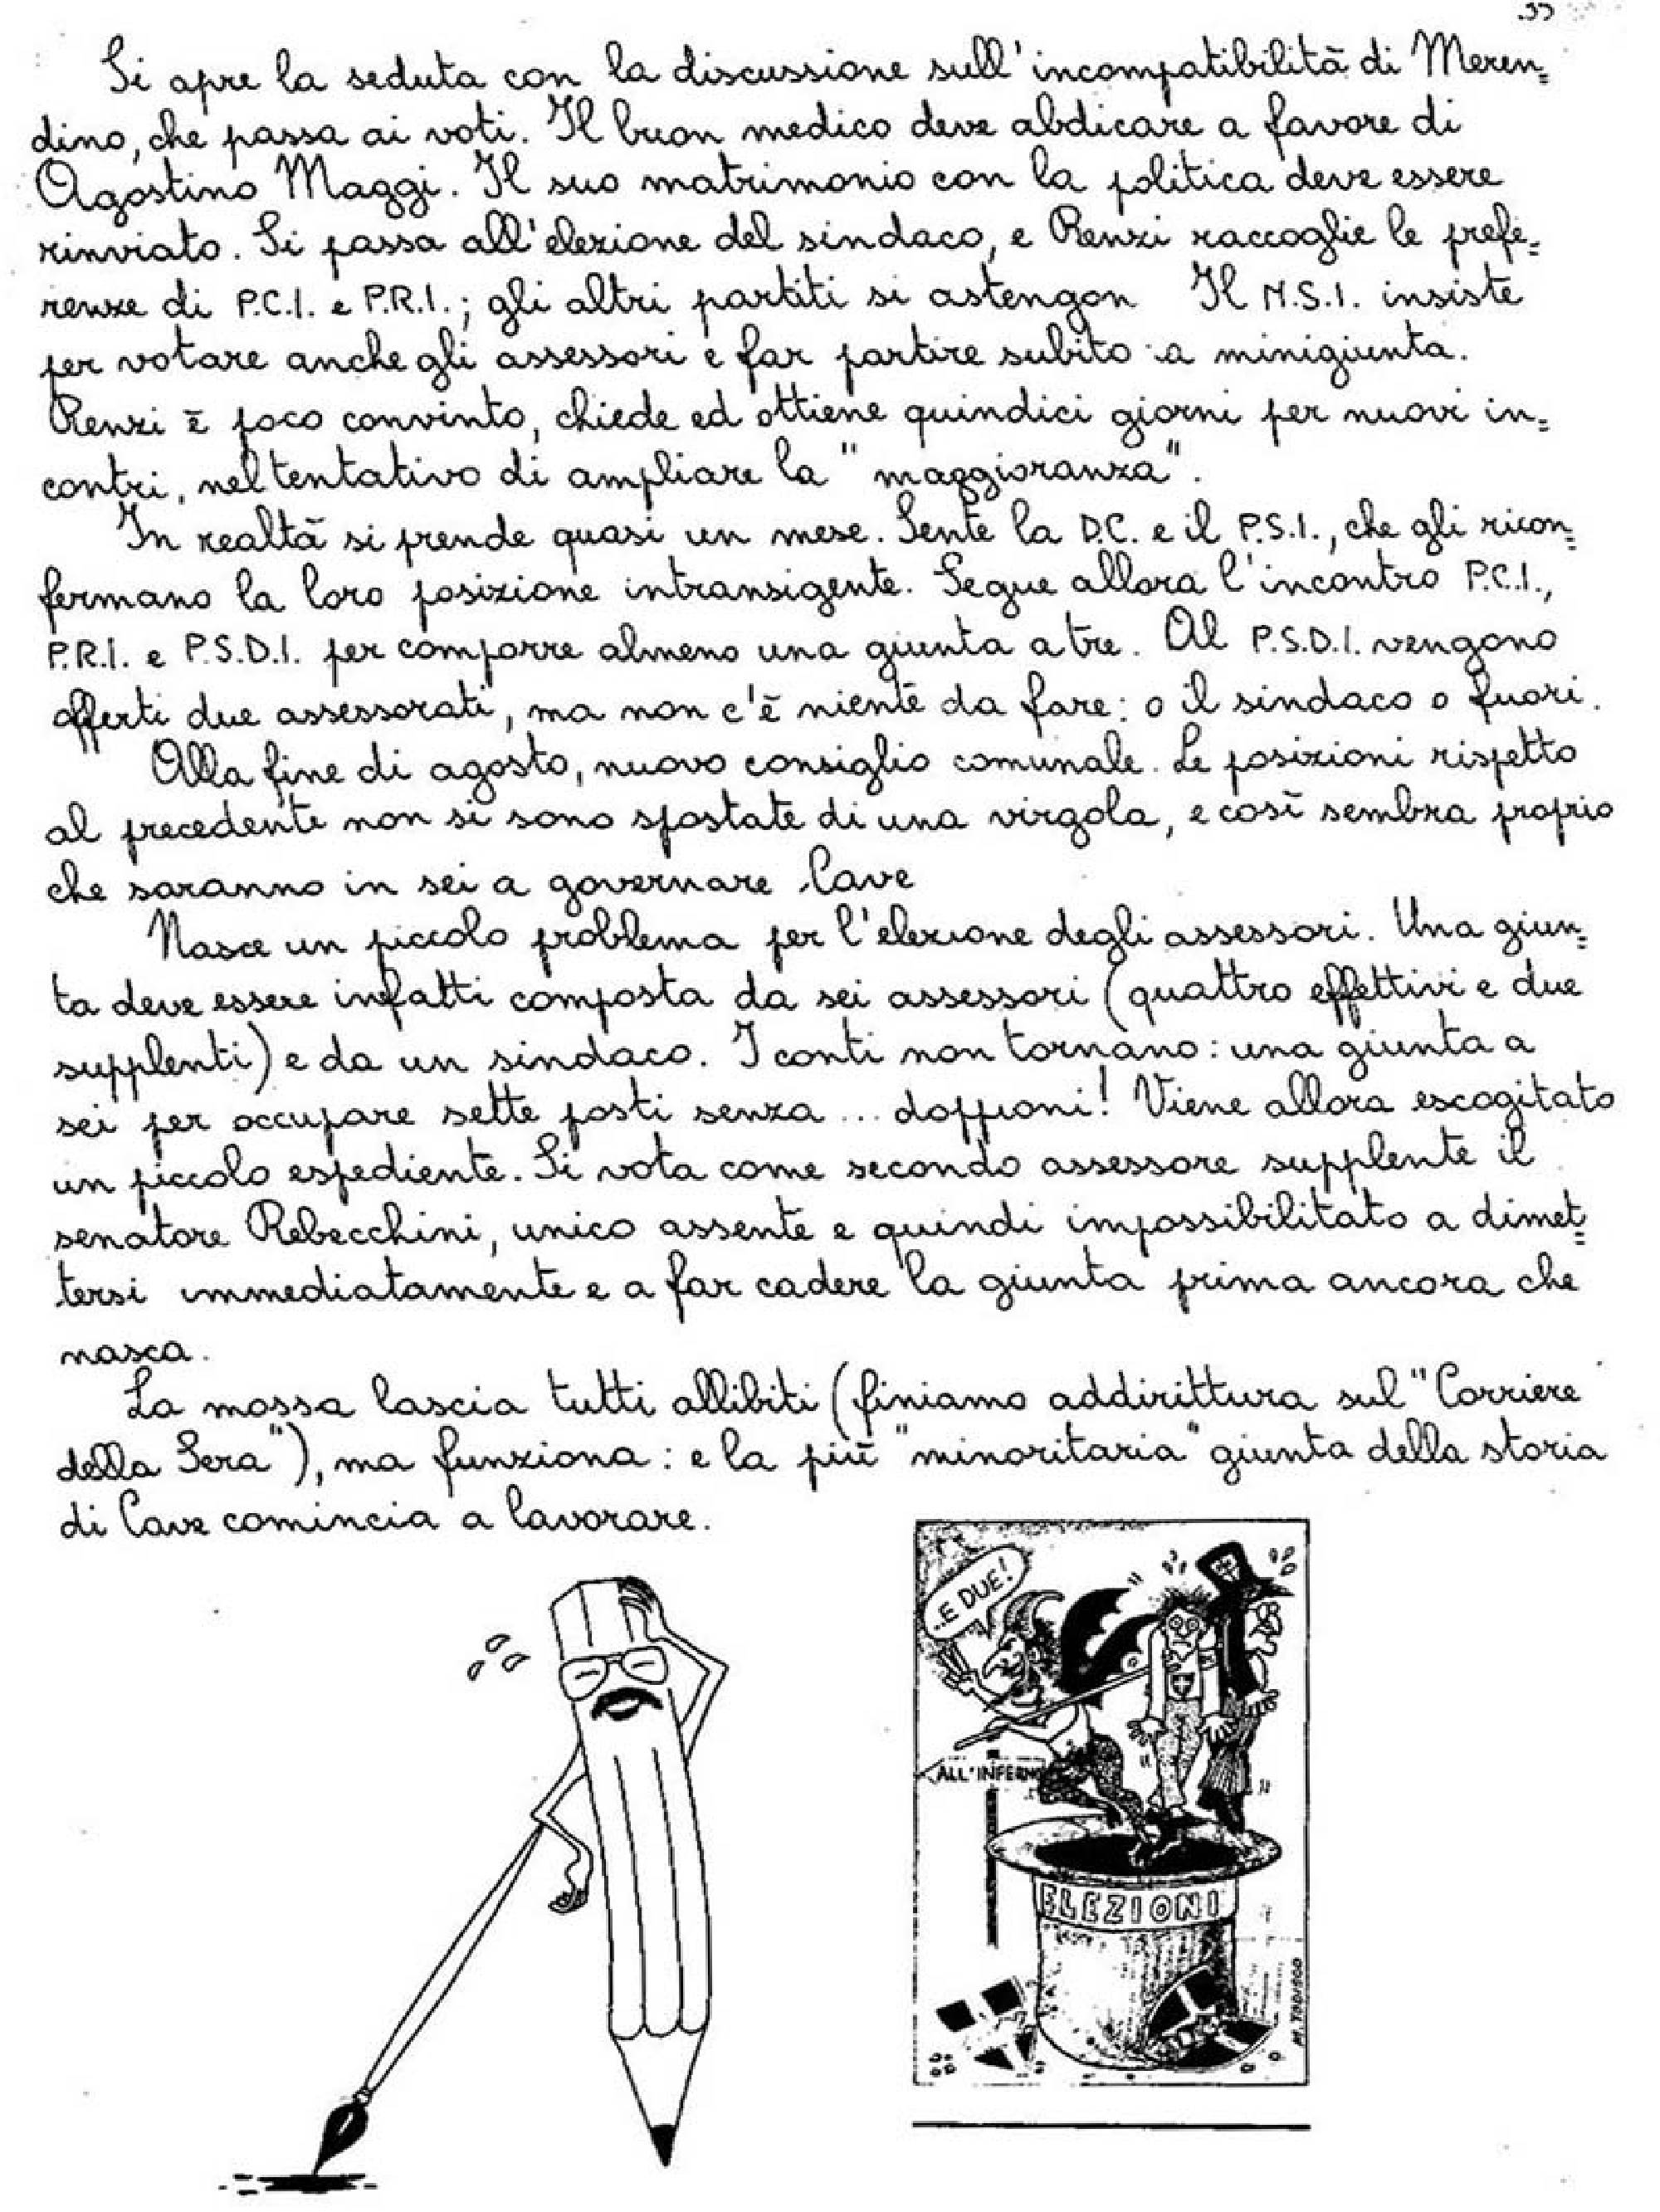 Si apre la seduta con la discussione sull'incompatibilità di Meren=
dino, che passa ai voti. Il buon medico deve abdicare a favore di
Agostino Maggi. Il suo matrimonio con la politica deve essere
rinviato. Si passa all'elezione del sindaco, e Renzi raccoglie le prefe=
renze di P.C.I. e P.R.I.; gli altri partiti si astengon Il M.S.I. insiste
per votare anche gli assessori e far partire subito a minigiunta.
Renzi è poco convinto, chiede ed ottiene quindici giorni per nuovi in=
contri, nel tentativo di ampliare la "maggioranza".
In realtà si prende quasi un mese. Sente la D.C. e il P.S.I., che gli ricon=
fermano la loro posizione intransigente. Segue allora l'incontro P.C.I.,
P.R.I. e P.S.D.I. per comporre almeno una giunta a tre. Al P.S.D.I. vengono
offerti due assessorati, ma non c'è niente da fare: o il sindaco o fuori.
Alla fine di agosto, nuovo consiglio comunale. Le posizioni rispetto
al precedente non si sono spostate di una virgola, e così sembra proprio
che saranno in sei a governare Cave
Nasce un piccolo problema per l'elezione degli assessori. Una giun=
ta deve essere infatti composta da sei assessori (quattro effettivi e due
supplenti) e da un sindaco. I conti non tornano: una giunta a
sei per occupare sette posti senza ... doppioni! Viene allora escogitato
un piccolo espediente. Si vota come secondo assessore supplente il
senatore Rebecchini, unico assente e quindi impossibilitato a dimet=
tersi immediatamente e a far cadere la giunta prima ancora che
nasca.
La mossa lascia tutti allibiti (finiamo addirittura sul "Corriere
della Sera"), ma funziona: e la più "minoritaria" giunta della storia
di Cave comincia a lavorare.
..E DUE!
ALL'INFERNO
ELEZIONI
M. TODISCO